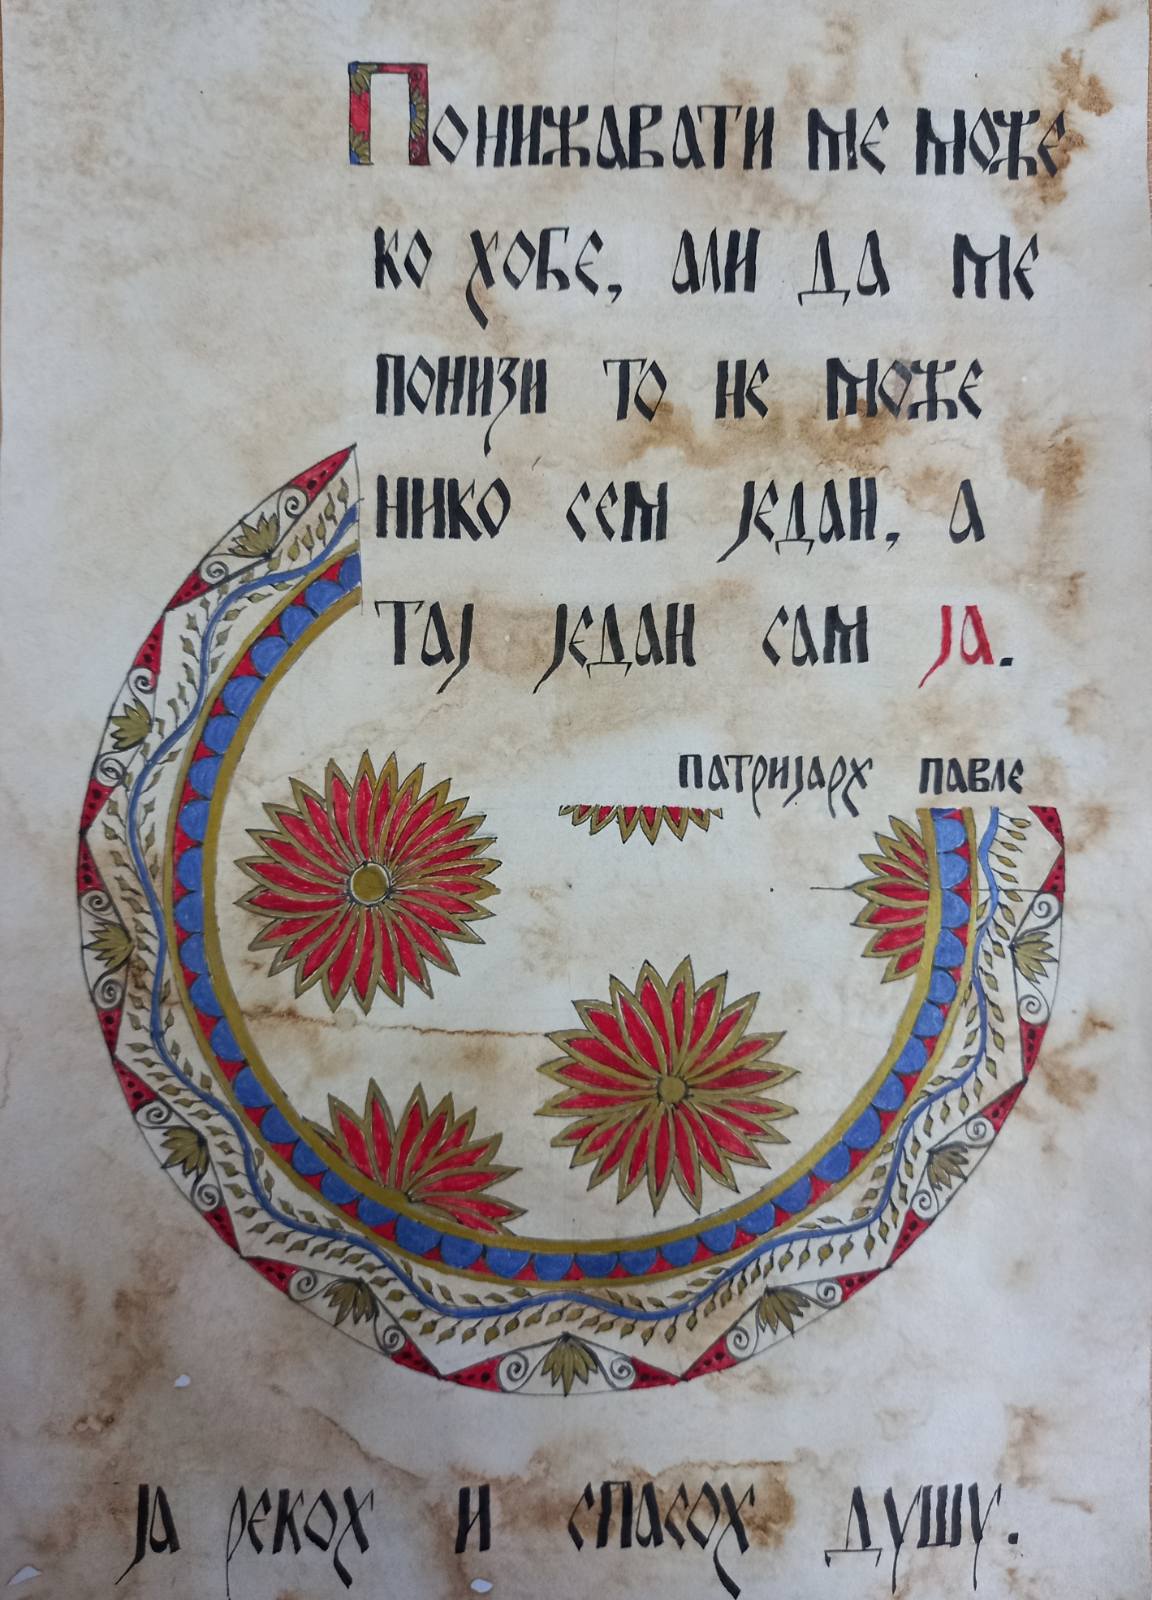 Понижавати ме може
ко хоће, али да ме
понизи то не може
нико сем један, а
тај један сам ја.
патријарх павле
ја рекох и спасох душу.